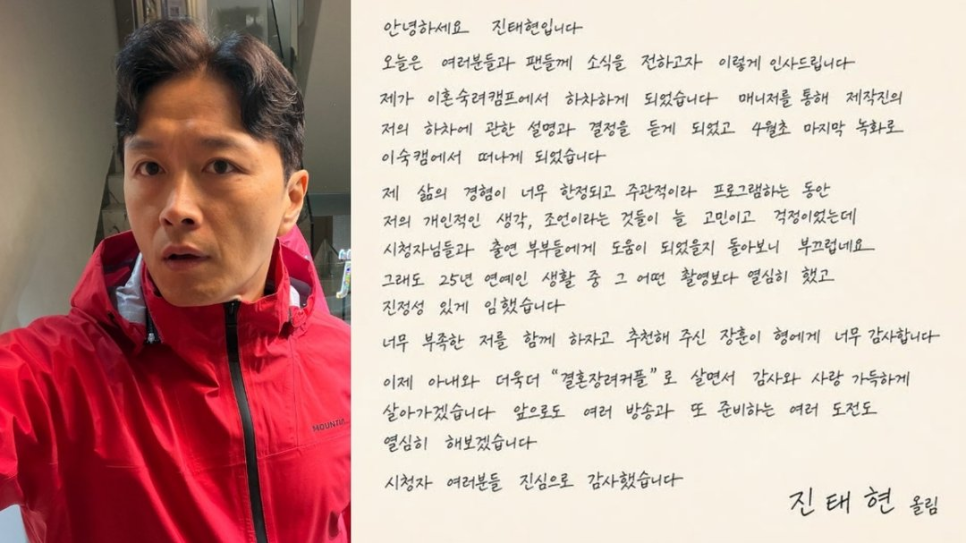 안녕하세요 진태현입니다
오늘은 여러분들과 팬들께 소식을 전하고자 이렇게 인사드립니다
제가 이혼숙려캠프에서 하차하게 되었습니다 매니저를 통해 제작진의
저의 하차에 관한 설명과 결정을 듣게 되었고 4월초 마지막 녹화로
이숙캠에서 떠나게 되었습니다
제 삶의 경험이 너무 한정되고 주관적이라 프로그램하는 동안
저의 개인적인 생각, 조언이라는 것들이 늘 고민이고 걱정이었는데
시청자님들과 출연 부부들에게 도움이 되었을지 돌아보니 부끄럽네요
그래도 25년 연예인 생활 중 그 어떤 촬영보다 열심히 했고
진정성 있게 임했습니다
너무 부족한 저를 함께 하자고 추천해 주신 장훈이 형에게 너무 감사합니다
이제 아내와 더욱더 “결혼장려커플”로 살면서 감사와 사랑 가득하게
살아가겠습니다 앞으로도 여러 방송과 또 준비하는 여러 도전도
열심히 해보겠습니다
시청자 여러분들 진심으로 감사했습니다
진태현 올림